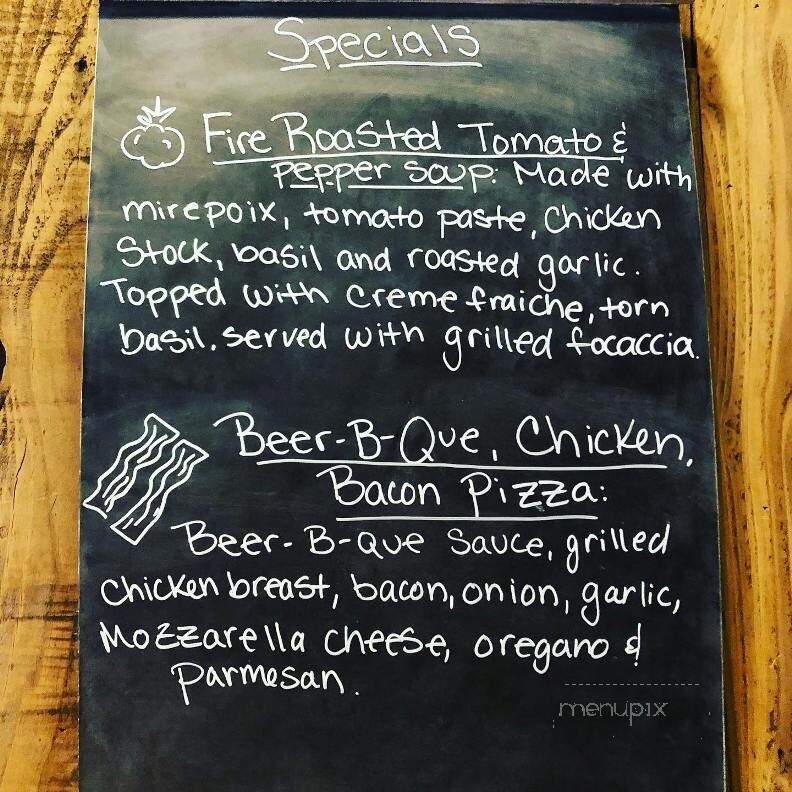 Specials
Fire Roasted Tomato &
Pepper Soup: Made with
mirepoix, tomato paste, chicken
Stock, basil and roasted garlic.
Topped with creme fraiche, torn
basil. served with grilled focaccia.
Beer-B-Que, Chicken,
Bacon Pizza:
Beer-B-Que Sauce, grilled
chicken breast, bacon, onion, garlic,
Mozzarella cheese, oregano &
Parmesan.
menupix